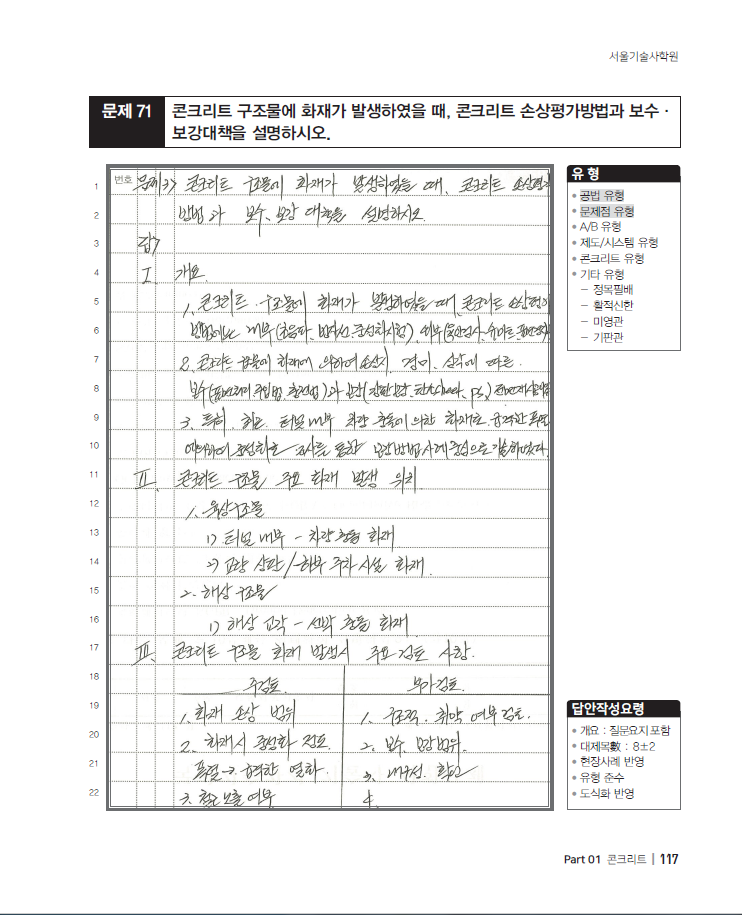 서울기술사학원
문제 71
콘크리트 구조물에 화재가 발생하였을 때, 콘크리트 손상평가방법과 보수 ·
보강대책을 설명하시오.
번호
1 문제3) 콘크리트 구조물에 화재가 발생하였을 때, 콘크리트 손상평가
2 방법과 보수, 보강 대책을 설명하시오.
3 답)
4 I. 개요
5 1. 콘크리트 구조물에 화재가 발생하였을 때, 콘크리트 손상평가
6 방법에는 내부(초음파, 방사선, 중성화시험), 외부(육안검사,
7 2. 콘크리트 구조물이 화재에 의하여 손상시, 경미, 심각에 따른
8 보수(표면처리, 주입법, 충전법)과 보강(강판보강, 탄소
9 3. 특히, 최근 터널 내부 차량 충돌에 의한 화재로 급격한
10 보강방법 사례 중심으로 기술하였다.
11 II. 콘크리트 구조물 주요 화재 발생 위치
12 1. 육상구조물
13 1) 터널 내부 - 차량 충돌 화재
14 2) 교량 상판/하부 주차시설 화재.
15 2. 해상 구조물
16 1) 해상 교각 - 선박 충돌 화재
17 III. 콘크리트 구조물 화재 발생시 주요 검토 사항.
18 주검토. 부가검토.
19 1. 화재 손상 범위 1. 구조적, 취약 여부 검토.
20 2. 화재시 중성화 정도 2. 보수, 보강범위.
21 폭렬→급격한 열화. 3. 내구성 확보
22 3. 철근 노출 여부 4.
유 형
• 공법 유형
• 문제점 유형
• A/B 유형
• 제도/시스템 유형
• 콘크리트 유형
• 기타 유형
– 정목필배
– 활적신한
– 미영관
– 기판관
답안작성요령
• 개요 : 질문요지 포함
• 대제목數 : 8±2
• 현장사례 반영
• 유형 준수
• 도식화 반영
Part 01 콘크리트 | 117